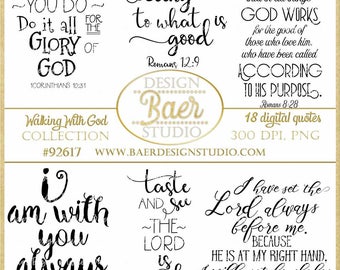 YOU DO
DO it all FOR THE
GLORY OF
GOD
1 CORINTHIANS 10:31
to what is
good
Romans 12:9
GOD WORKS
for the good of
those who love him,
who have been called
ACCORDING
TO HIS PURPOSE.
Romans 8:28
DESIGN
Baer
STUDIO
Walking With God
COLLECTION
#92617
18 digital quotes
300 DPI, PNG
WWW.BAERDESIGNSTUDIO.COM
i
am with
you
always
taste
AND see
~THE~
LORD
is
I have set the
Lord always
before me.
BECAUSE
HE IS AT MY RIGHT HAND,